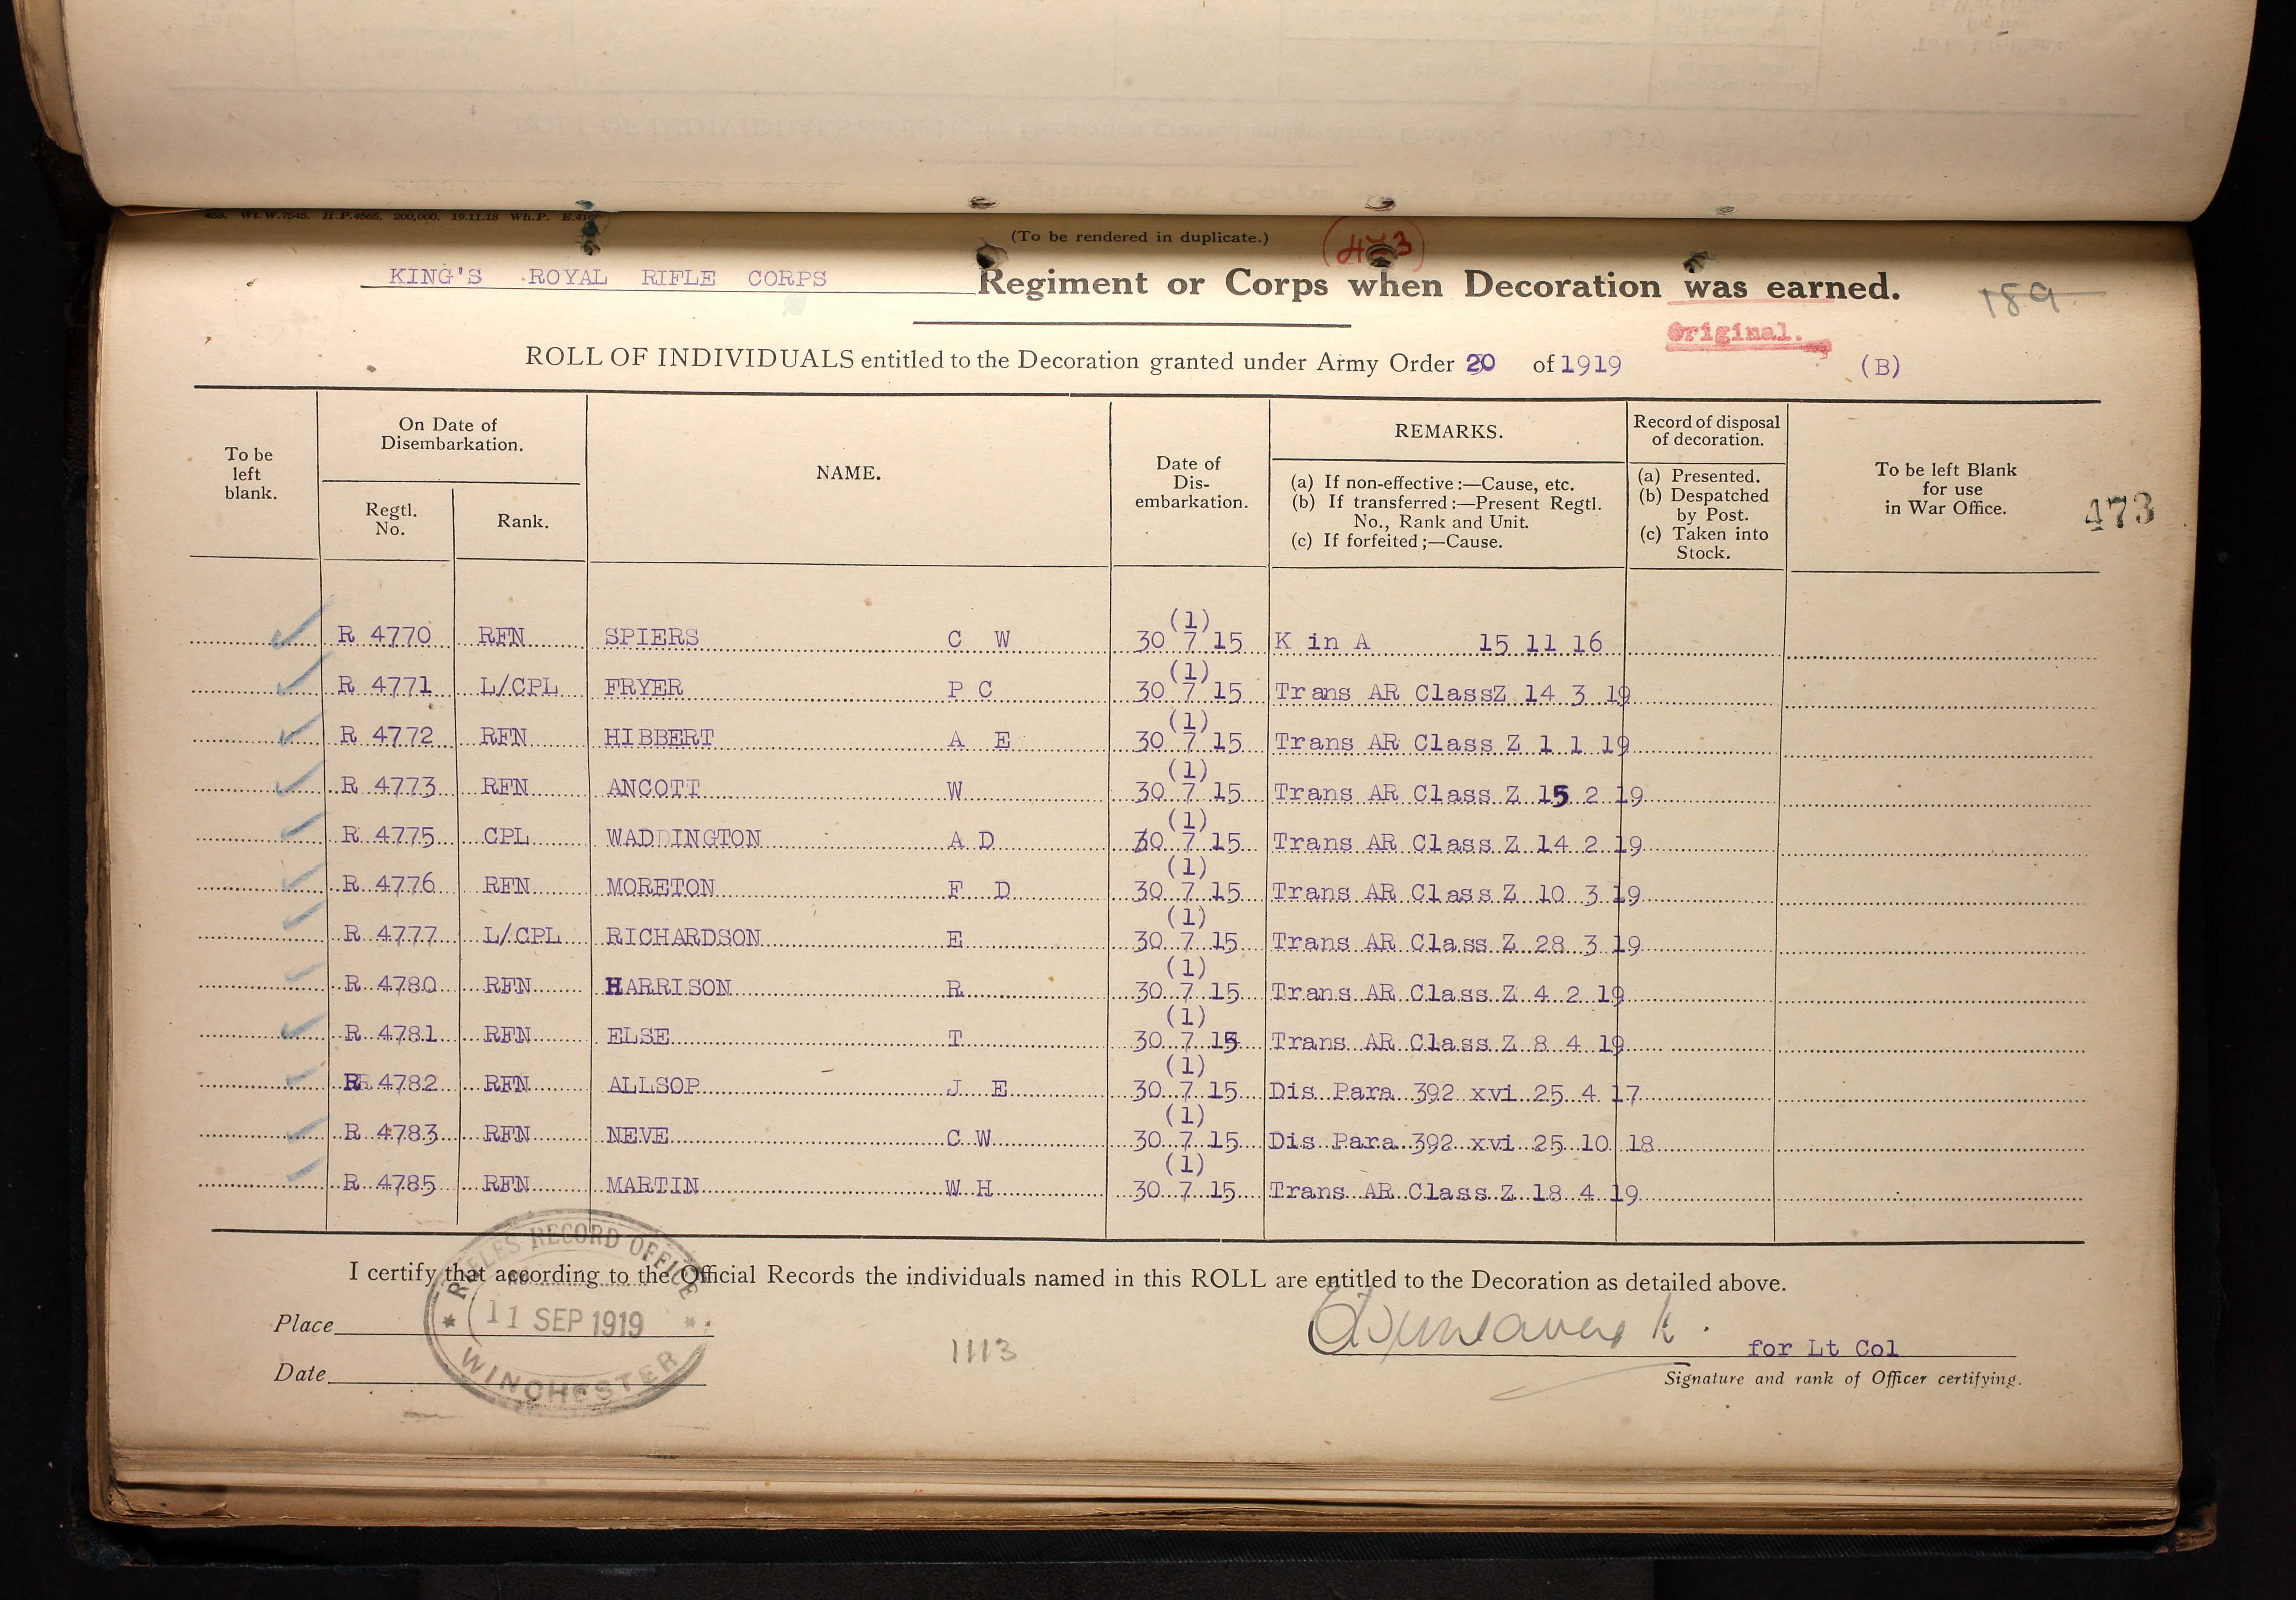 458. Wt.W.7545. H.P.4565. 200,000. 19.11.18 Wh.P.
(To be rendered in duplicate.)
KING'S ROYAL RIFLE CORPS Regiment or Corps when Decoration was earned.
189
Original.
ROLL OF INDIVIDUALS entitled to the Decoration granted under Army Order 20 of 1919 (B)
To be left blank.
On Date of Disembarkation.
Regtl. No.
Rank.
NAME.
Date of Dis-embarkation.
REMARKS.
(a) If non-effective :—Cause, etc.
(b) If transferred :—Present Regtl. No., Rank and Unit.
(c) If forfeited ;—Cause.
Record of disposal of decoration.
(a) Presented.
(b) Despatched by Post.
(c) Taken into Stock.
To be left Blank for use in War Office.
473
R 4770 RFN SPIERS C W (1) 30 7 15 K in A 15 11 16
R 4771 L/CPL FRYER P C (1) 30 7 15 Trans AR ClassZ 14 3 19
R 4772 RFN HIBBERT A E (1) 30 7 15 Trans AR Class Z 1 1 19
R 4773 RFN ANCOTT W (1) 30 7 15 Trans AR Class Z 15 2 19
R 4775 CPL WADDINGTON A D (1) 30 7 15 Trans AR Class Z 14 2 19
R 4776 RFN MORETON F D (1) 30 7 15 Trans AR Class Z 10 3 19
R 4777 L/CPL RICHARDSON E (1) 30 7 15 Trans AR Class Z 28 3 19
R 4780 RFN HARRISON R (1) 30 7 15 Trans AR Class Z 4 2 19
R 4781 RFN ELSE T (1) 30 7 15 Trans AR Class Z 8 4 19
R 4782 RFN ALLSOP J E (1) 30 7 15 Dis Para 392 xvi 25 4 17
R 4783 RFN NEVE C W (1) 30 7 15 Dis Para 392 xvi 25 10 18
R 4785 RFN MARTIN W H (1) 30 7 15 Trans AR Class Z 18 4 19
I certify that according to the Official Records the individuals named in this ROLL are entitled to the Decoration as detailed above.
RIFLES RECORD OFFICE
11 SEP 1919
WINCHESTER
Place
1113
for Lt Col
Date
Signature and rank of Officer certifying.